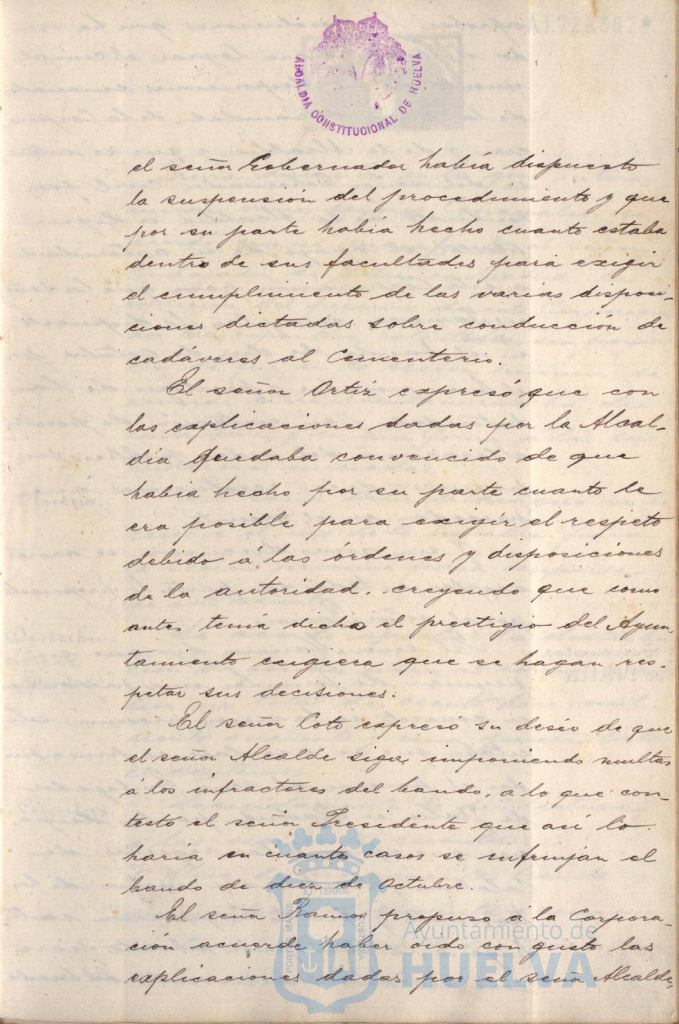 ALCALDIA CONSTITUCIONAL DE HUELVA
el señor Gobernador había dispuesto
la suspensión del procedimiento y que
por su parte había hecho cuanto estaba
dentro de sus facultades para exigir
el cumplimiento de las varias disposi-
ciones dictadas sobre conducción de
cadáveres al Cementerio.
El señor Ortiz expresó que con
las explicaciones dadas por la Alcal-
día quedaba convencido de que
había hecho por su parte cuanto le
era posible para exigir el respeto
debido á las órdenes y disposiciones
de la autoridad, creyendo que como
antes tenía dicho el prestigio del Ayun-
tamiento exigiera que se hagan res-
petar sus decisiones.
El señor Coto expresó su deseo de que
el señor Alcalde siga imponiendo multas
á los infractores del bando, á lo que con-
testó el señor Presidente que así lo
haría en cuanto casos se infrinjan el
bando de diez de Octubre.
El señor Ramos propuso á la Corpora-
ción acuerde haber oido con gusto las
explicaciones dadas por el señor Alcalde,
Ayuntamiento de
HUELVA